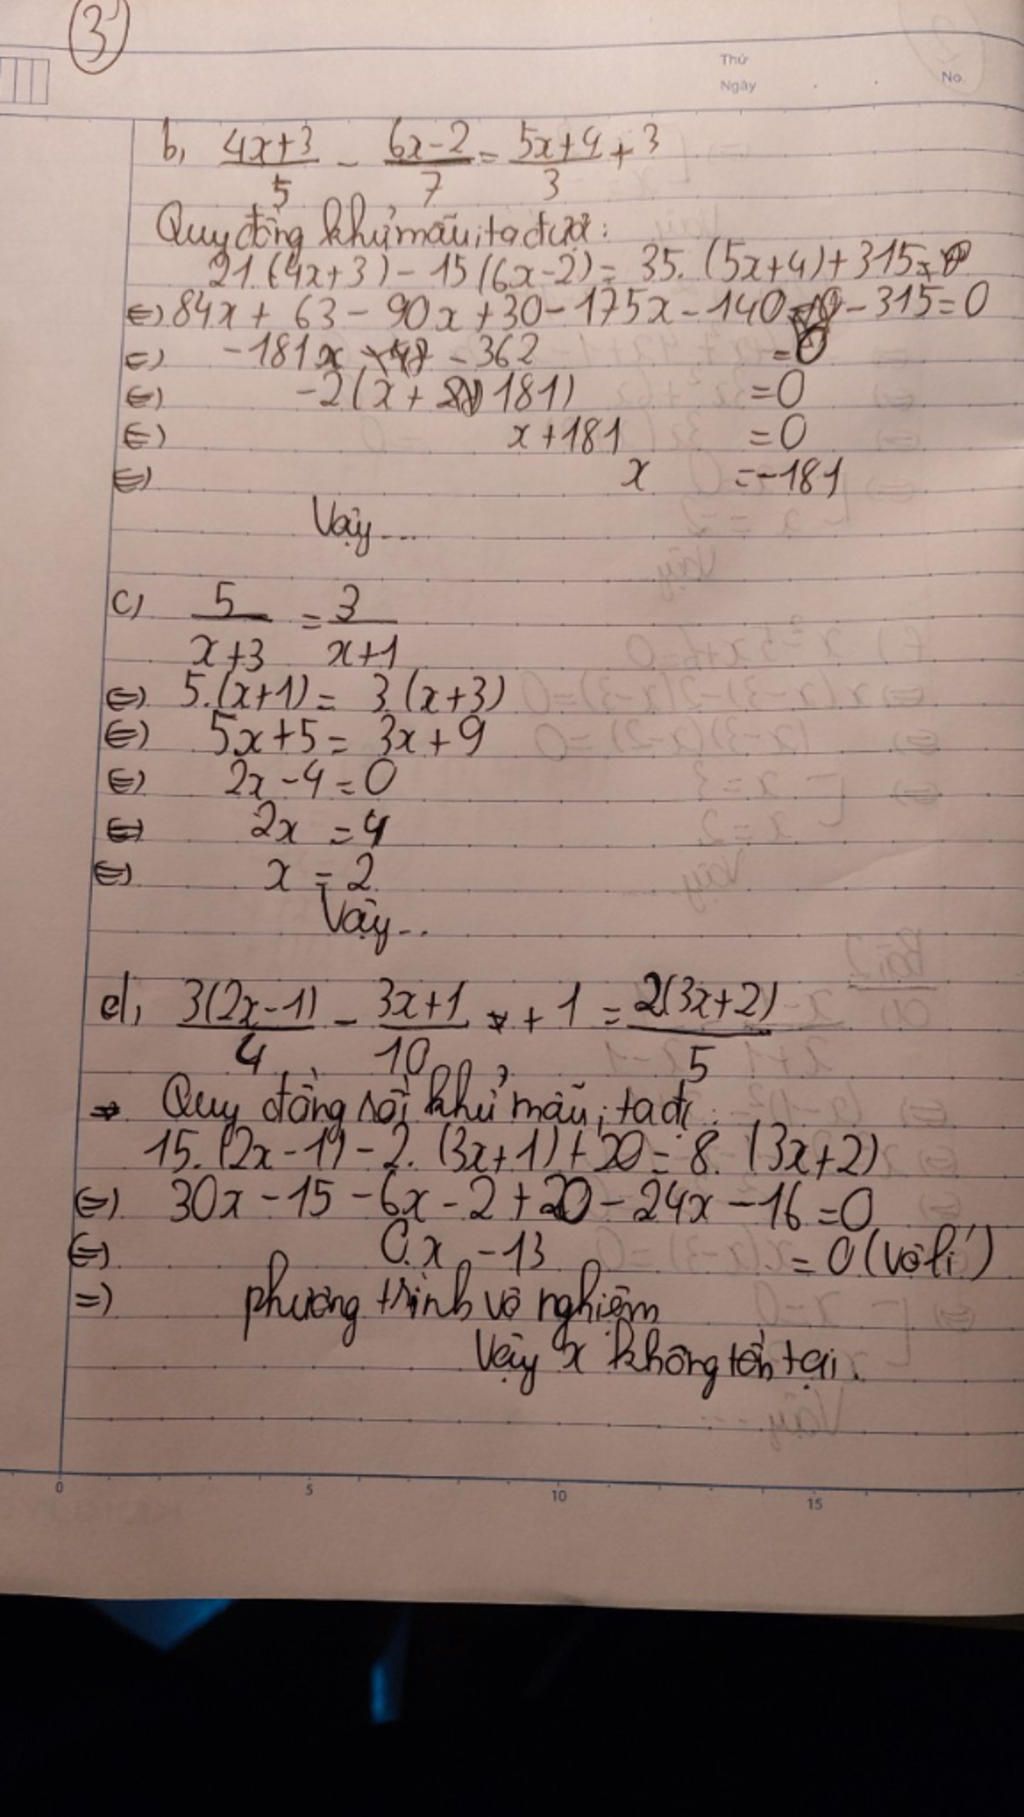 3
Thứ
Ngày
No.
b, (4x+3)/5 - (6x-2)/7 = (5x+4)/3 + 3
Quy đồng khử mẫu, ta được:
21.(4x+3) - 15(6x-2) = 35.(5x+4)+315
⇔) 84x + 63 - 90x + 30 - 175x - 140 - 315 = 0
⇔) -181x - 362 = 0
⇔) -2(x + 181) = 0
⇔) x+181 = 0
⇔) x = -181
Vậy...
c, 5/(x+3) = 3/(x+1)
⇔) 5.(x+1) = 3(x+3)
⇔) 5x+5 = 3x+9
⇔) 2x-4 = 0
⇔) 2x = 4
⇔) x = 2
Vậy..
d, 3(2x-1)/4 - (3x+1)/10 + 1 = 2(3x+2)/5
→ Quy đồng rồi khử mẫu, ta đc:
15.(2x-1) - 2.(3x+1) + 20 = 8.(3x+2)
⇔) 30x - 15 - 6x - 2 + 20 - 24x - 16 = 0
⇔) 0.x - 13 = 0 (vô lí)
=) phương trình vô nghiệm
Vậy x không tồn tại.
0 5 10 15